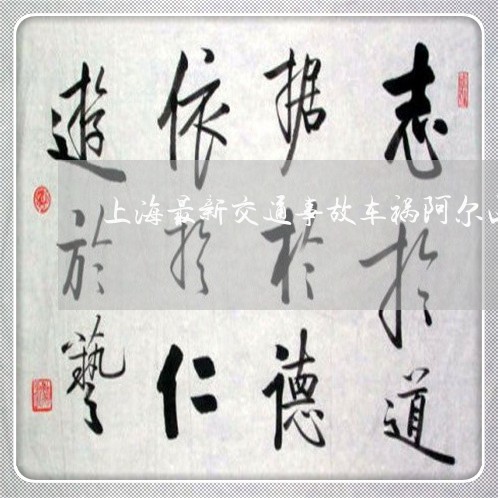 志於道
据於德
依於仁
遊於藝
上海最新交通事故车祸阿尔